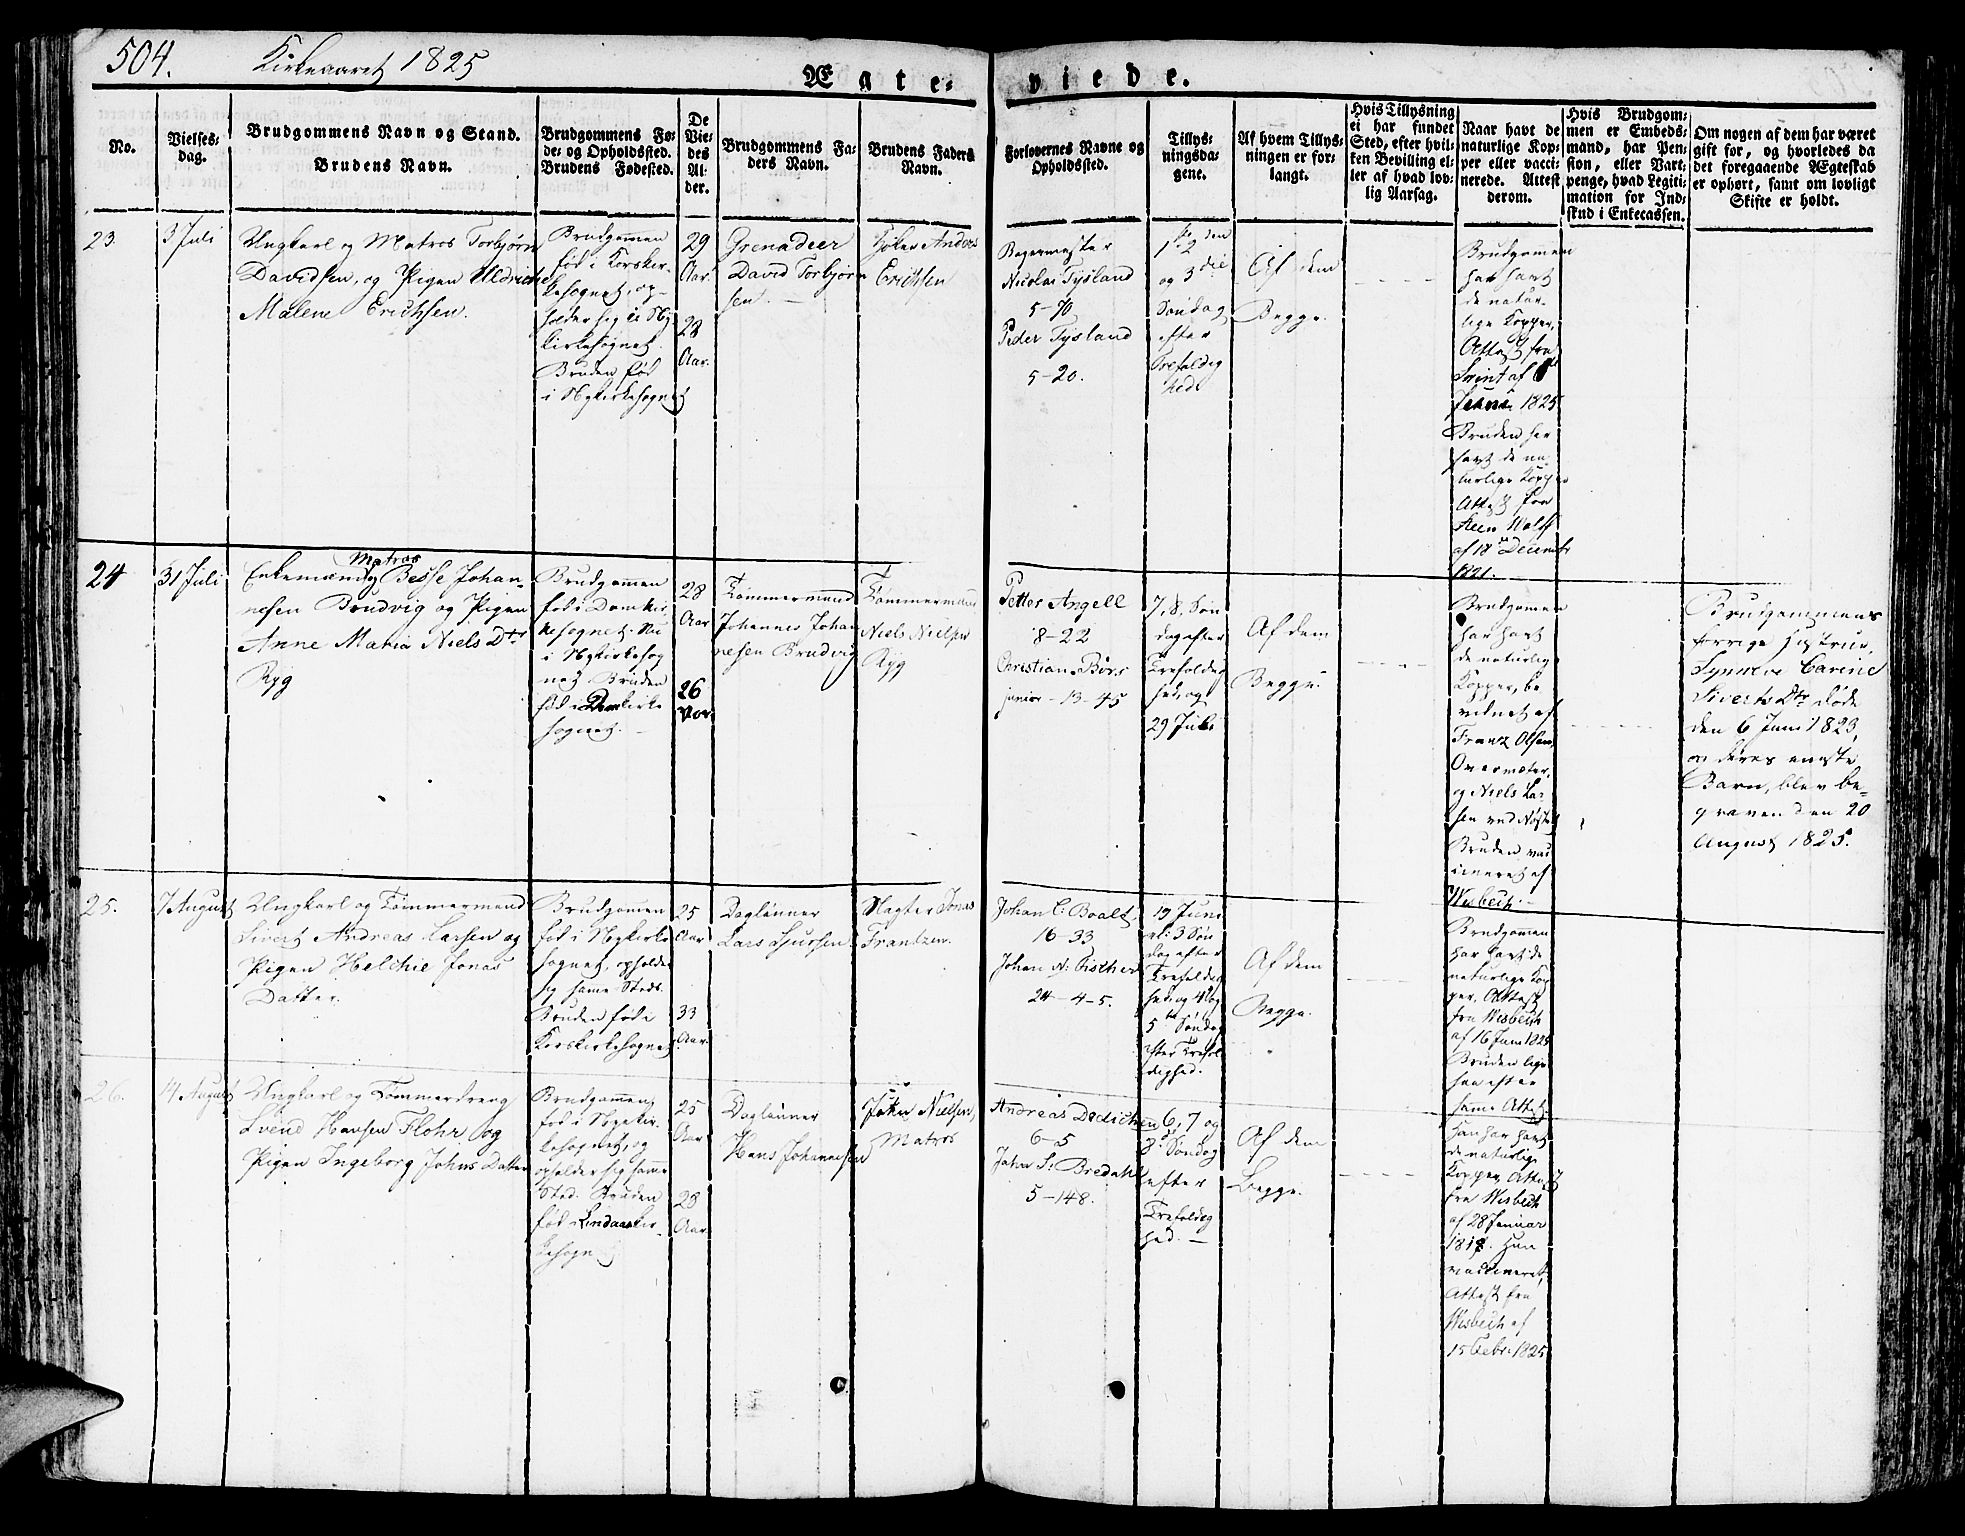 504.
Kirkeaaret 1825
Ægte-
viede.
No.
Vielses-
dag.
Brudgommens Navn og Stand.
Brudens Navn.
Brudgommens Fø-
de- og Opholdssted.
Brudens Fødested.
De
Vie-
des
Al-
der.
Brudgommens Fa-
ders Navn.
Brudens Faders
Navn.
Forlovernes Navne og
Opholdssted.
Tillys-
ningsda-
gene.
Af hvem Tillys-
ningen er for-
langt.
Hvis Tillysning
ei har fundet
Sted, efter hvil-
ken Bevilling el-
ler af hvad lov-
lig Aarsag.
Naar havt de
naturlige Kop-
per eller vacci-
nerede. Attest
derom.
Hvis Brudgom-
men er Embeds-
mand, har Pen-
sion, eller Vart-
penge, hvad Legiti-
mation for Ind-
skud i Enkecassen.
Om nogen af dem har været
gift før, og hvorledes da
det foregaaende Ægteskab
er ophørt, samt om lovligt
Skifte er holdt.
23.
3 Juli
Ungkarl og Matros Torbjørn
Davidsen, og Pigen Uldriche
Malene Erichsen.
Brudgommen
fød i Korskir-
kesognet, op-
holder sig i Ny-
kirkesognet.
Bruden fød
i Nykirkesognet
29
Aar.
28
Aar.
Grenadeer
David Torbjørn
sen. —
Anders
Erichsen
Bogermester
Nicolai Tysland
5-70
Peder Tysland
5-20.
1ste 2den
og 3die
Søndag
efter
Trefoldig
hed
Af dem
Begge.
Brudgommen
har havt
de natur-
lige Kopper,
Attest fra
af
1825
Bruden har
havt de na-
turlige Kopper
Attest fra
af 18de Decemb:
1821.
24
31 Juli
Enkemand og Matros Besse Johan-
nesen Brudvig og Pigen
Anne Maria Niels Dtr
Ryg
Brudgommen
fød i Domkir-
kesognet. Nu
i Nykirkesog
net. Bruden
fød i Domkirke
sognet. —
28
Aar
26
Aar.
Tømmermand
Johannes Johan
nesen Brudvig
Tømmermand
Niels Nielsen
Ryg
Petter Angell
8-22
Christian Børs
junior - 13-45
7, 8, Søn
dag efter
Trefoldig
hed, og
29 Juli
Af dem
Begge.
Brudgommen
har havt
de naturlig
Kopper, be
vidnet af
Frantz Olsen,
og Niels La-
sen ved Nøstet
Bruden vac
cineret af
Wisbech. —
Brudgommens
forrige Hustrue,
Synneve Carine
Siverts Dtr døde
den 6 Juni 1823,
og deres eneste
Barn, blev be-
graven den 20
August 1825.
25.
7 August
Ungkarl og Tømmermand
Sivert Andreas Larsen og
Pigen Helchie Jonas
Datter.
Brudgommen
fød i Nykirke
sognet, opholder
sig samme Steds.
Bruden fød i
Korskirkesognet
25
Aar
33
Aar.
Dagløner
Lars Sjursen
Slagter Jonas
Frantzen.
Johan C: Boalt
16-33
Johan N: Fischer
24-4-5.
19 Juni
al: 3 Søn
dag efter
Trefoldig
hed, og 4de og
5te Søndag
efter Trefol
dighed.
Af dem
Begge.
Brudgommen
har havt de
naturlige Kop
per, Attest
fra Wisbech
af 16 Juni 1825
Bruden lige
saa efter
samme Attest
26.
14 August
Ungkarl og Tømmerdreng
Svend Hansen Flohr og
Pigen Ingeborg Johns Datter
Brudgommen
fød i Nykir-
kesognet, og
opholder sig samme
Sted. Bruden
fød i Lindaaskir-
kesogn
25
Aar
28
Aar
Dagløner
Hans Johannesen
John Nielsen,
Matros
Andreas Dedichen
6-5
John S: Bredahl
5-148.
6, 7 og
8de Søndag
efter
Trefoldig
hed. —
Af dem
Begge.
Han har havt
de naturlige
Kopper, Attest
fra Wisbech
af 28 Januar
181. Hun
vaccineret,
Attest fra
Wisbech af
15 Febr: 1825